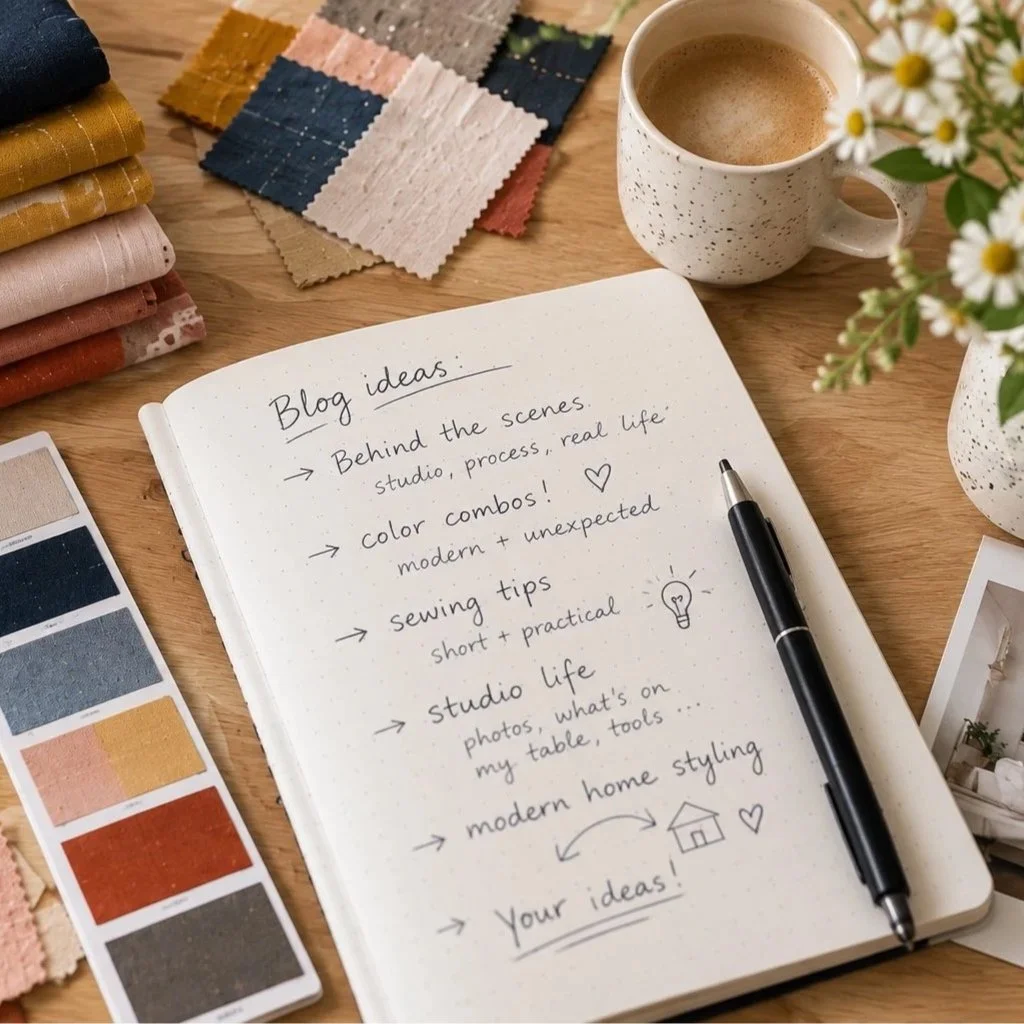 Blog ideas:
→ Behind the scenes
studio, process, real life
→ color combos!
modern + unexpected
→ sewing tips
short + practical
→ studio life
photos, what's on
my table, tools ...
→ modern home styling
→ Your ideas!